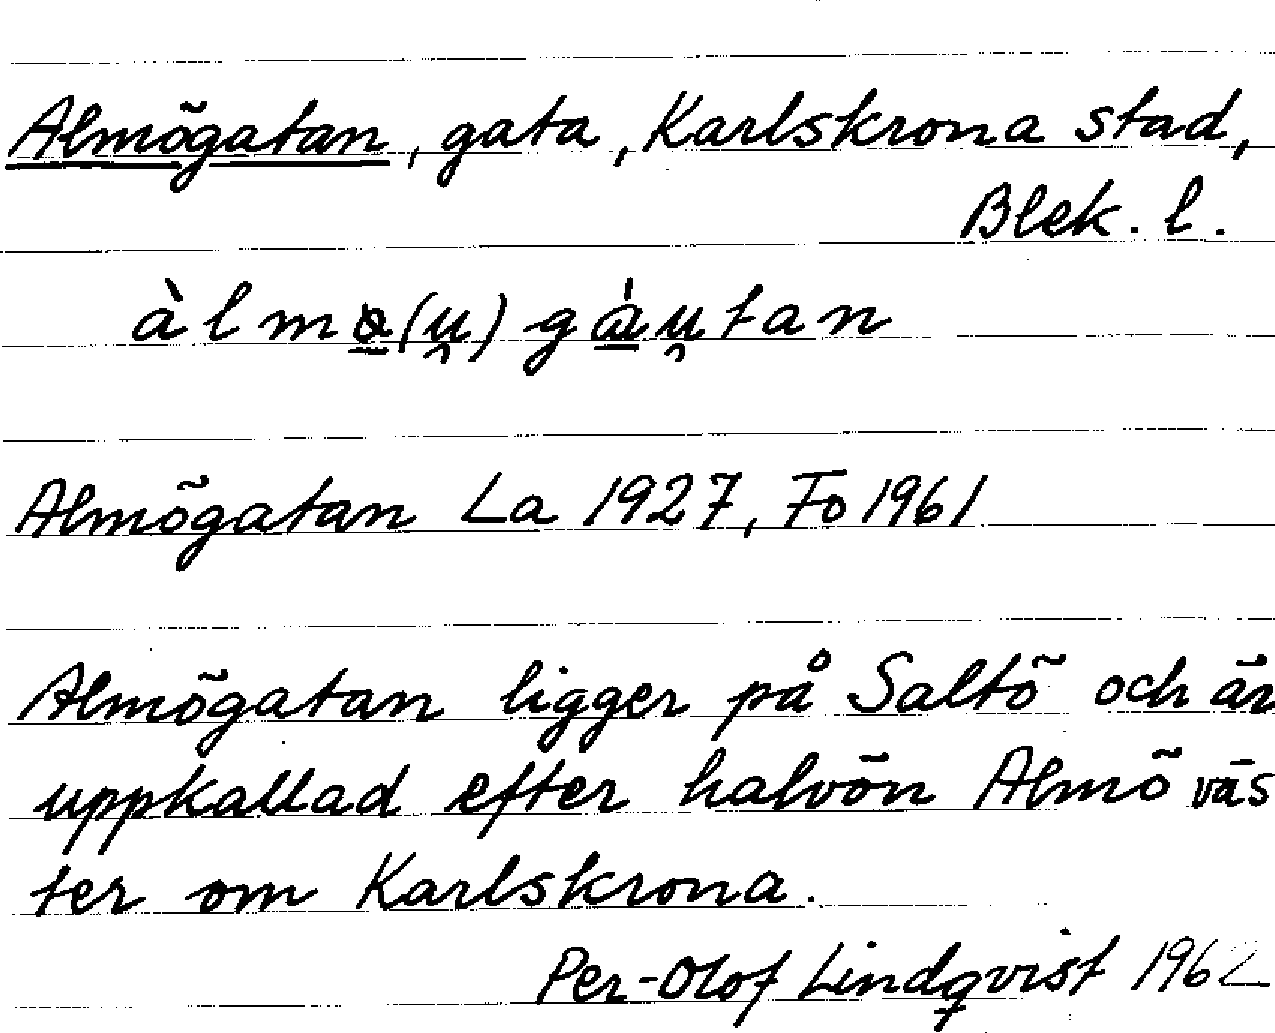 Almögatan, gata, Karlskrona stad,
Blek. l.
àlmo̲(u̯)ga̲̍u̯tan
Almögatan La 1927, Fo 1961
Almögatan ligger på Saltö och är
uppkallad efter halvön Almö väs
ter om Karlskrona.
Per-Olof Lindqvist 1962